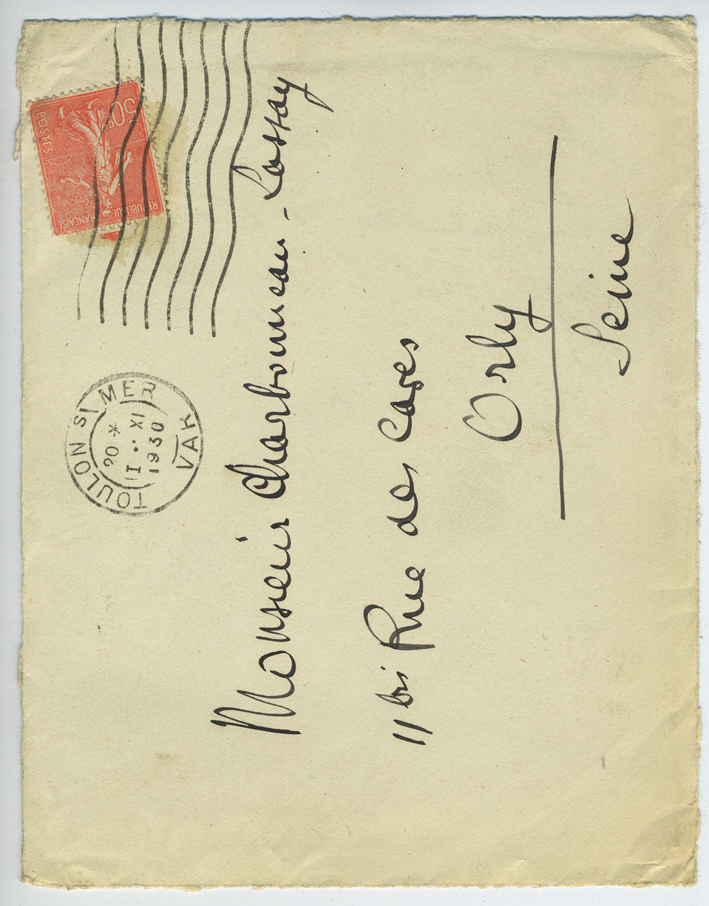 50c
POSTES
REPUBLIQUE FRANÇAISE
TOULON S/ MER
20 *
1 · XI
1930
VAR
Monsieur Charbonneau-Lassay
11 bis Rue des Caves
Orly
Seine